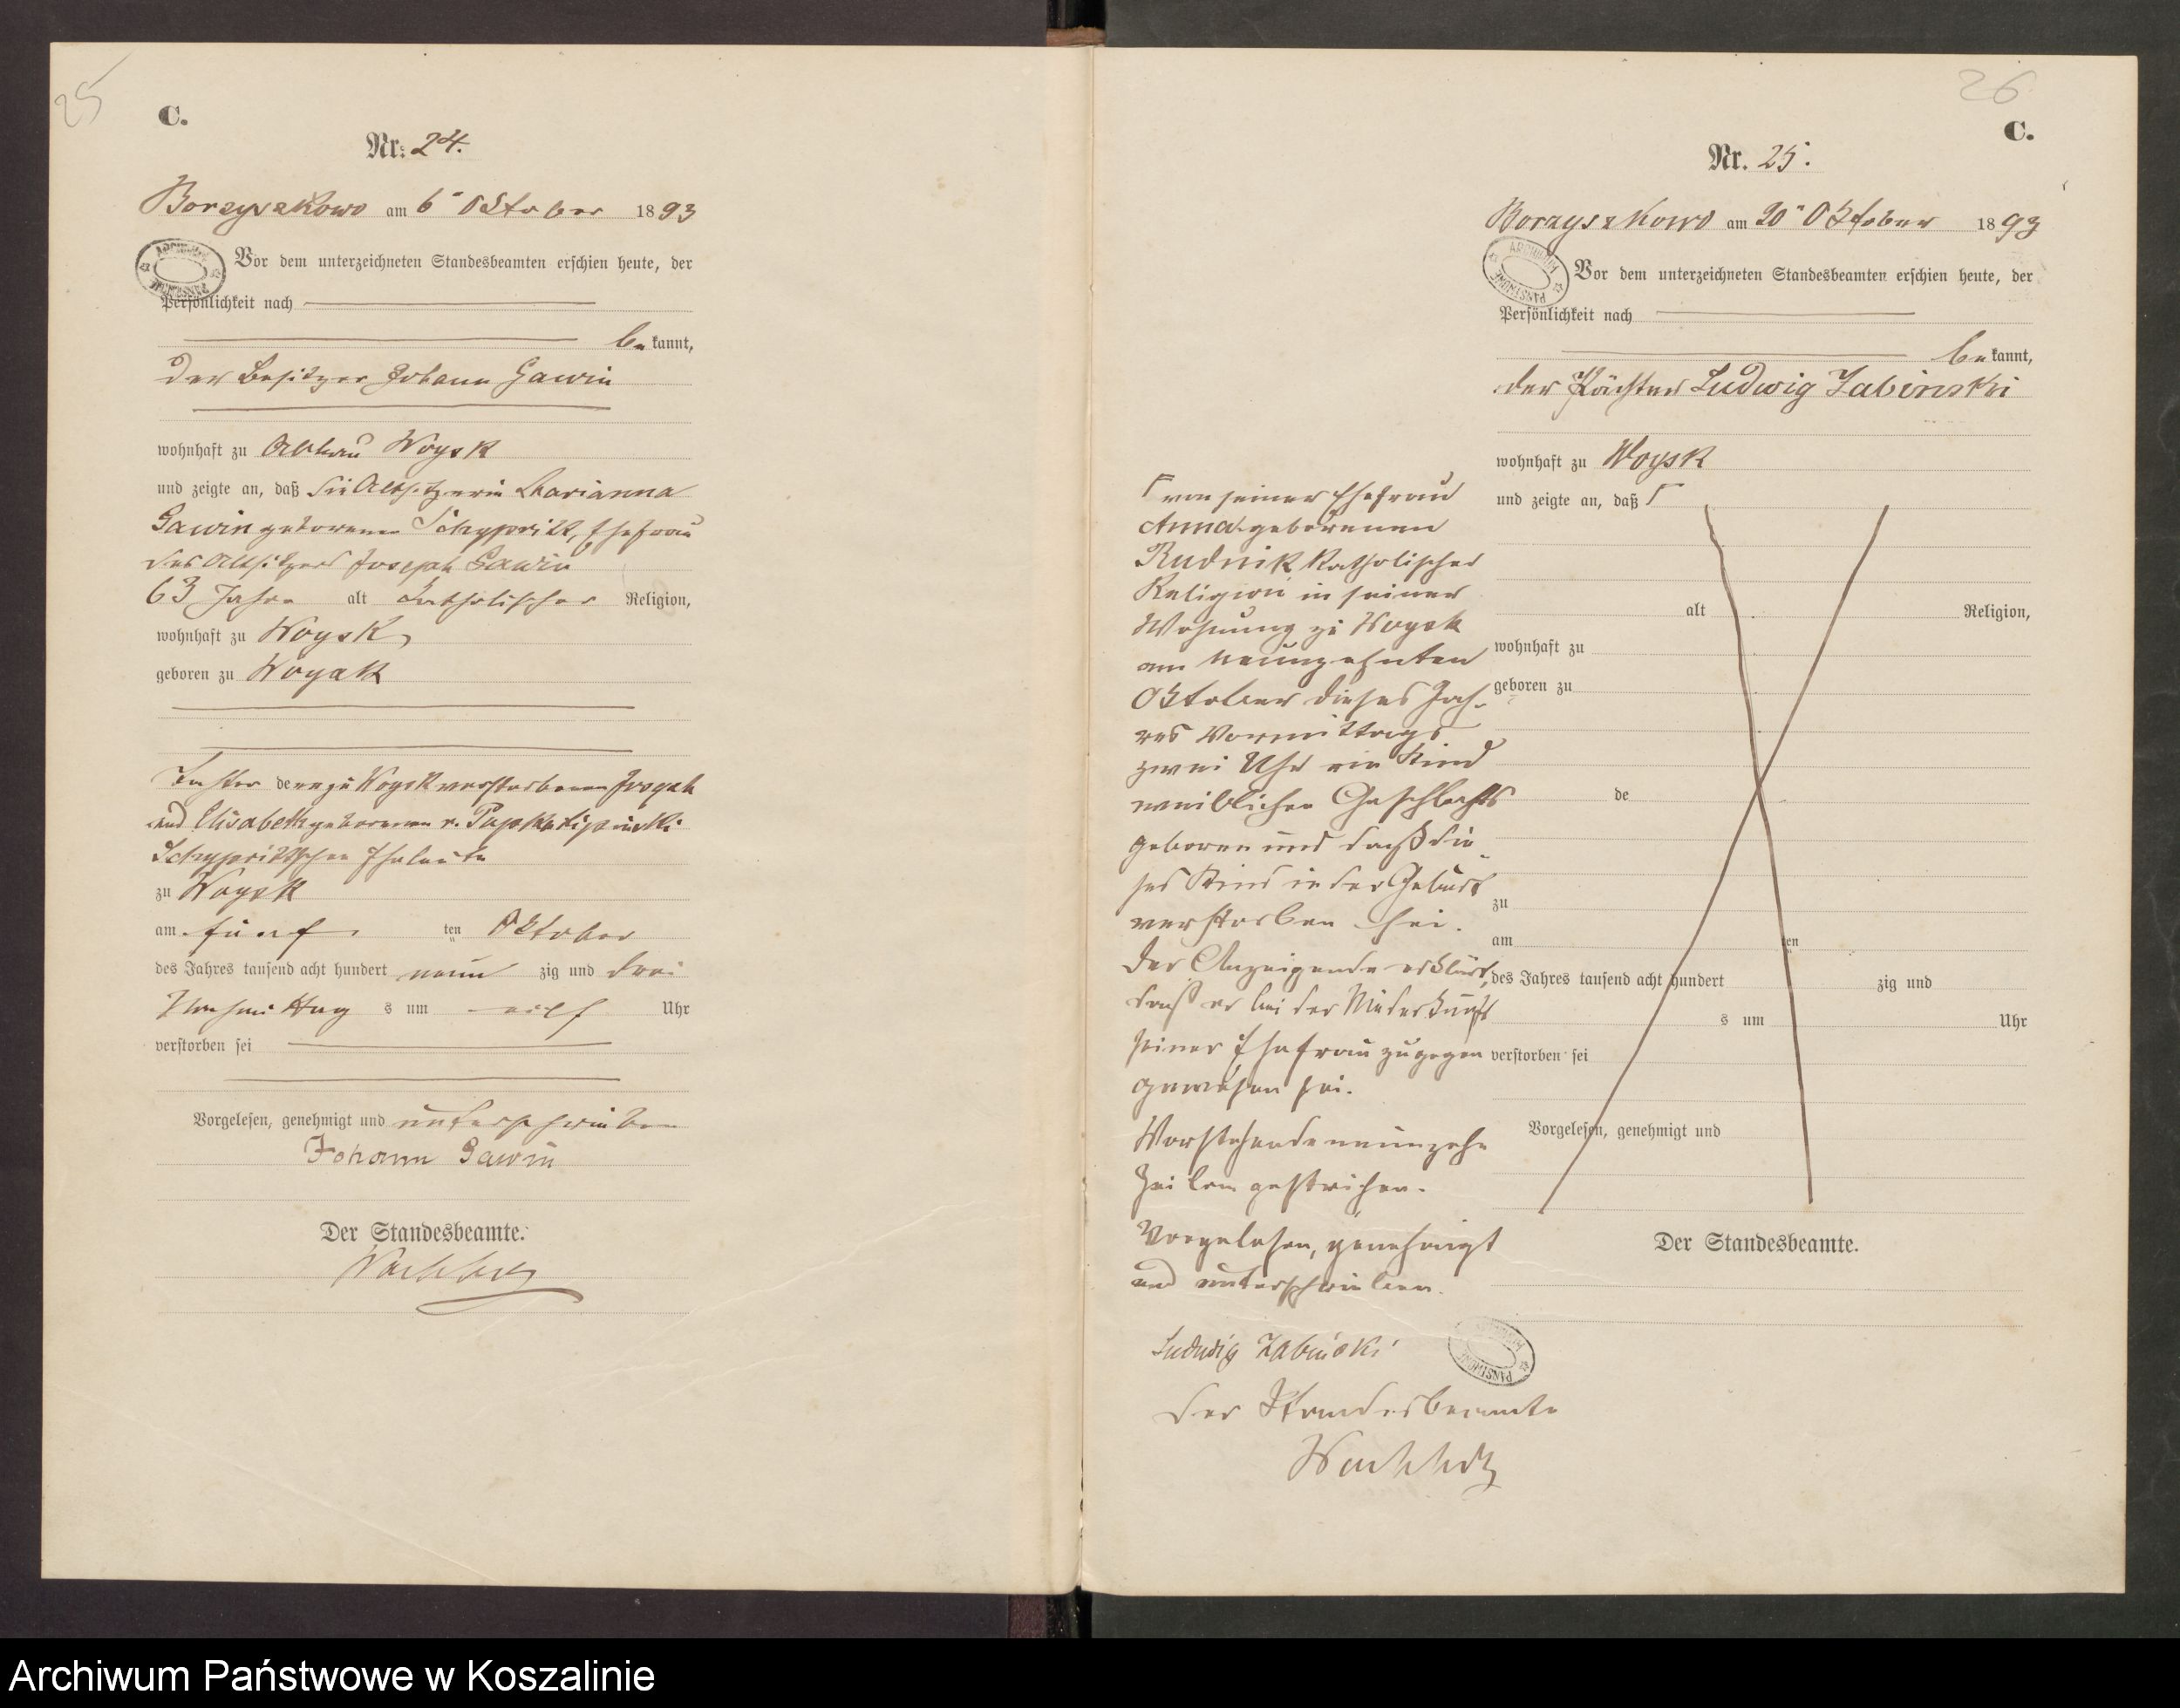 25
C.
Nr. 24.
Borzyszkowo am 6ᵗ Oktober 1893
ARCHIWUM PAŃSTWOWE
Vor dem unterzeichneten Standesbeamten erschien heute, der
Persönlichkeit nach
bekannt,
der Besitzer Johann Gawin
wohnhaft zu Abbau Woysk
und zeigte an, daß die Altsitzerin Marianna
Gawin geborene, Ehefrau
des Altsitzers Joseph Gawin
63 Jahre alt katholischer Religion,
wohnhaft zu Woysk,
geboren zu Woysk
Tochter der zu Woysk verstorbenen Joseph
und Elisabeth geborenen v.
Eheleute
zu Woysk
am fünf ten Oktober
des Jahres tausend acht hundert neun zig und drei
Vormittag s um elf Uhr
verstorben sei
Vorgelesen, genehmigt und unterschrieben
Johann Gawin
Der Standesbeamte.
26
C.
Nr. 25.
Borzyszkowo am 20ᵗ Oktober 1893
ARCHIWUM PAŃSTWOWE
Vor dem unterzeichneten Standesbeamten erschien heute, der
Persönlichkeit nach
bekannt,
der Pächter Ludwig Zabinski
wohnhaft zu Woysk
und zeigte an, daß Γ
alt Religion,
wohnhaft zu
geboren zu
de
zu
am ten
des Jahres tausend acht hundert zig und
s um Uhr
verstorben sei
Vorgelesen, genehmigt und
Der Standesbeamte.
Γ von seiner Ehefrau
Anna geborenen
Rudnik katholischer
Religion in seiner
Wohnung zu Woysk
am neunzehnten
Oktober dieses Jah-
res Vormittags
zwei Uhr ein Kind
weiblichen Geschlechts
geboren und daß die-
ses Kind in der Geburt
verstorben sei.
Der Anzeigende erklärt,
daß er bei der Niederkunft
seiner Ehefrau zugegen
gewesen sei.
Vorstehende neunzehn
Zeilen gestrichen.
Vorgelesen, genehmigt
und unterschrieben.
Ludwig Zabinski
ARCHIWUM PAŃSTWOWE
der Standesbeamte
Archiwum Państwowe w Koszalinie